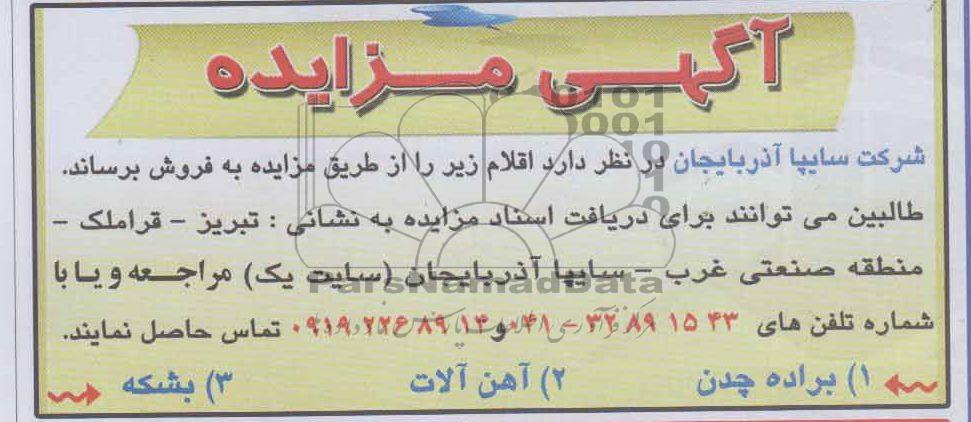 آگهی مزایده
شرکت سایپا آذربایجان در نظر دارد اقلام زیر را از طریق مزایده به فروش برساند.
طالبین می توانند برای دریافت اسناد مزایده به نشانی : تبریز - قراملک -
منطقه صنعتی غرب - سایپا آذربایجان (سایت یک) مراجعه و یا با
شماره تلفن های ۴۳ ۱۵ ۸۹ ۳۲ - ۰۴۱ و ۱۳ ۸۹ ۲۲۶ ۰۹۱۹ تماس حاصل نمایند.
۱) براده چدن ۲) آهن آلات ۳) بشکه
ParsNamadData